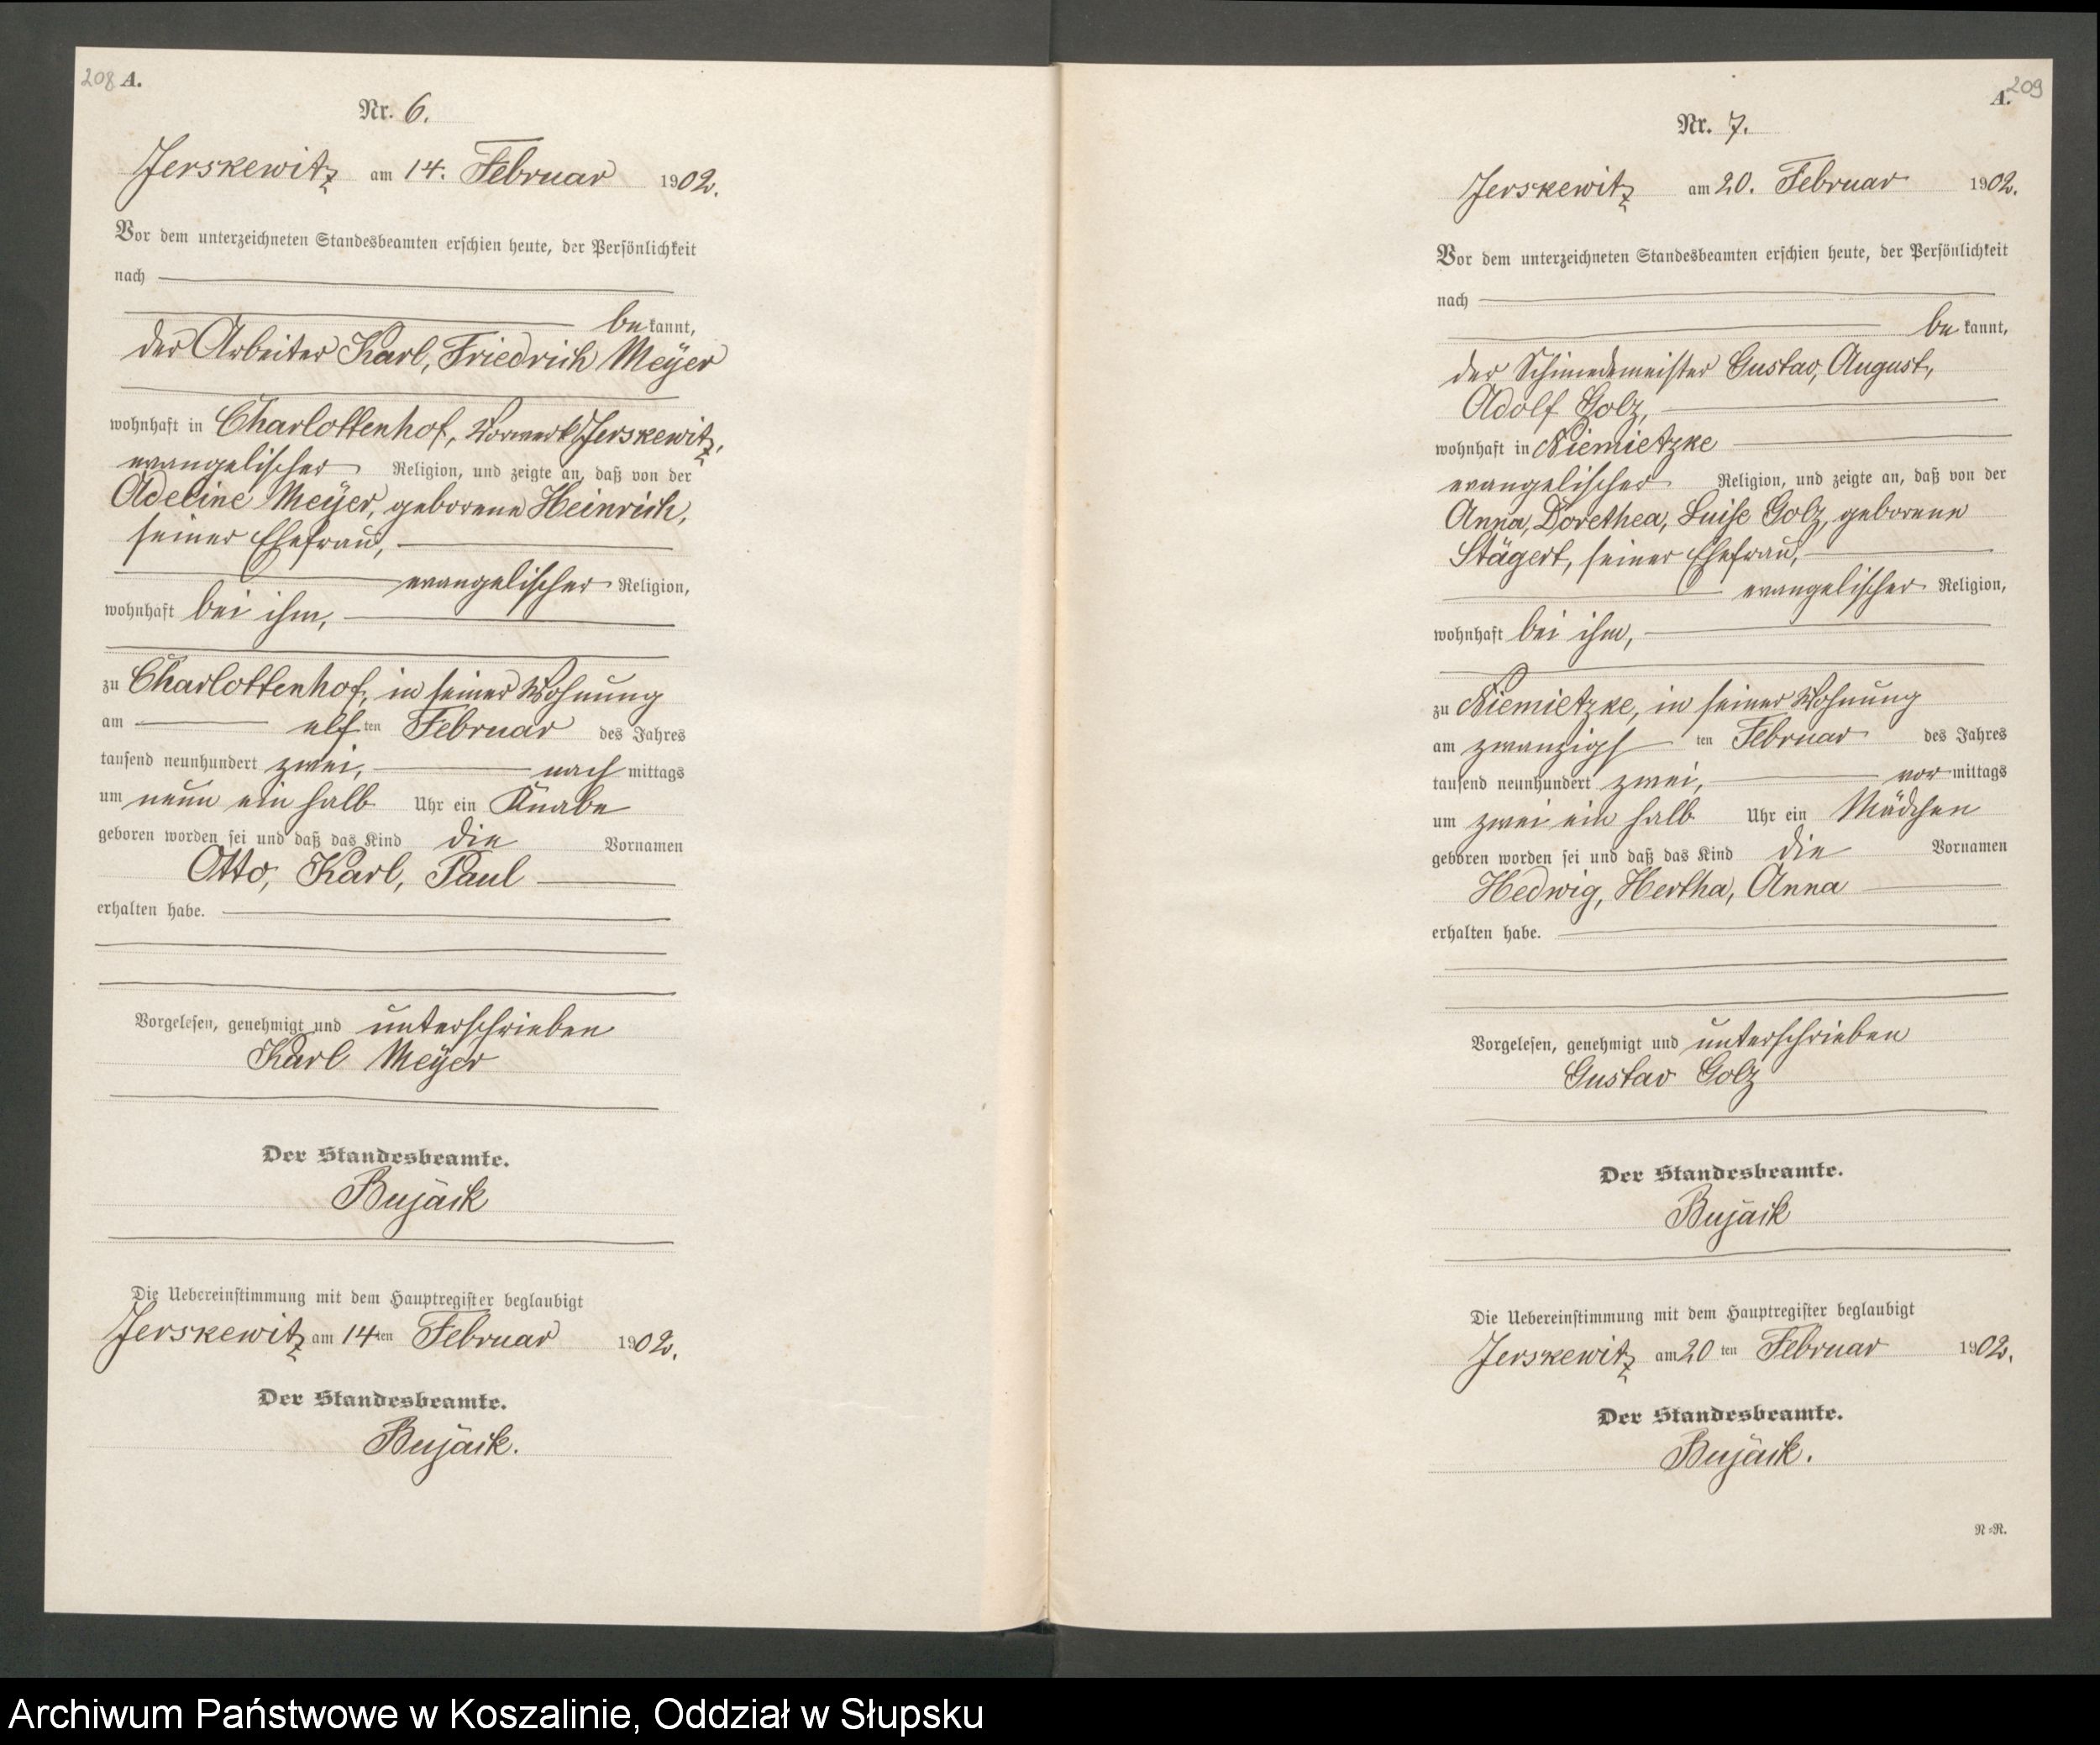 208 A.
Nr. 6.
Jerskewitz am 14. Februar 1902.
Vor dem unterzeichneten Standesbeamten erschien heute, der Persönlichkeit
nach
bekannt,
der Arbeiter Karl, Friedrich Meÿer
wohnhaft in Charlottenhof, Vorwerk Jerskewitz,
evangelischer Religion, und zeigte an, daß von der
Adeline Meÿer, geborene Heinrich,
seiner Ehefrau,
evangelischer Religion,
wohnhaft bei ihm,
zu Charlottenhof, in seiner Wohnung
am elften Februar des Jahres
tausend neunhundert zwei, nachmittags
um neun ein halb Uhr ein Knabe
geboren worden sei und daß das Kind die Vornamen
Otto, Karl, Paul
erhalten habe.
Vorgelesen, genehmigt und unterschrieben
Karl Meÿer
Der Standesbeamte.
Bujack
Die Uebereinstimmung mit dem Hauptregister beglaubigt
Jerskewitz am 14ten Februar 1902.
Der Standesbeamte.
Bujack.
209
A.
Nr. 7.
Jerskewitz am 20. Februar 1902.
Vor dem unterzeichneten Standesbeamten erschien heute, der Persönlichkeit
nach
bekannt,
der Schmiedemeister Gustav, August,
Adolf Golz,
wohnhaft in Niemietzke
evangelischer Religion, und zeigte an, daß von der
Anna, Dorethea, Luise Golz, geborene
Stägert, seiner Ehefrau,
evangelischer Religion,
wohnhaft bei ihm,
zu Niemietzke, in seiner Wohnung
am zwanzigsten Februar des Jahres
tausend neunhundert zwei, vormittags
um zwei ein halb Uhr ein Mädchen
geboren worden sei und daß das Kind die Vornamen
Hedwig, Hertha, Anna
erhalten habe.
Vorgelesen, genehmigt und unterschrieben
Gustav Golz
Der Standesbeamte.
Bujack
Die Uebereinstimmung mit dem Hauptregister beglaubigt
Jerskewitz am 20ten Februar 1902.
Der Standesbeamte.
Bujack.
N=R.
Archiwum Państwowe w Koszalinie, Oddział w Słupsku